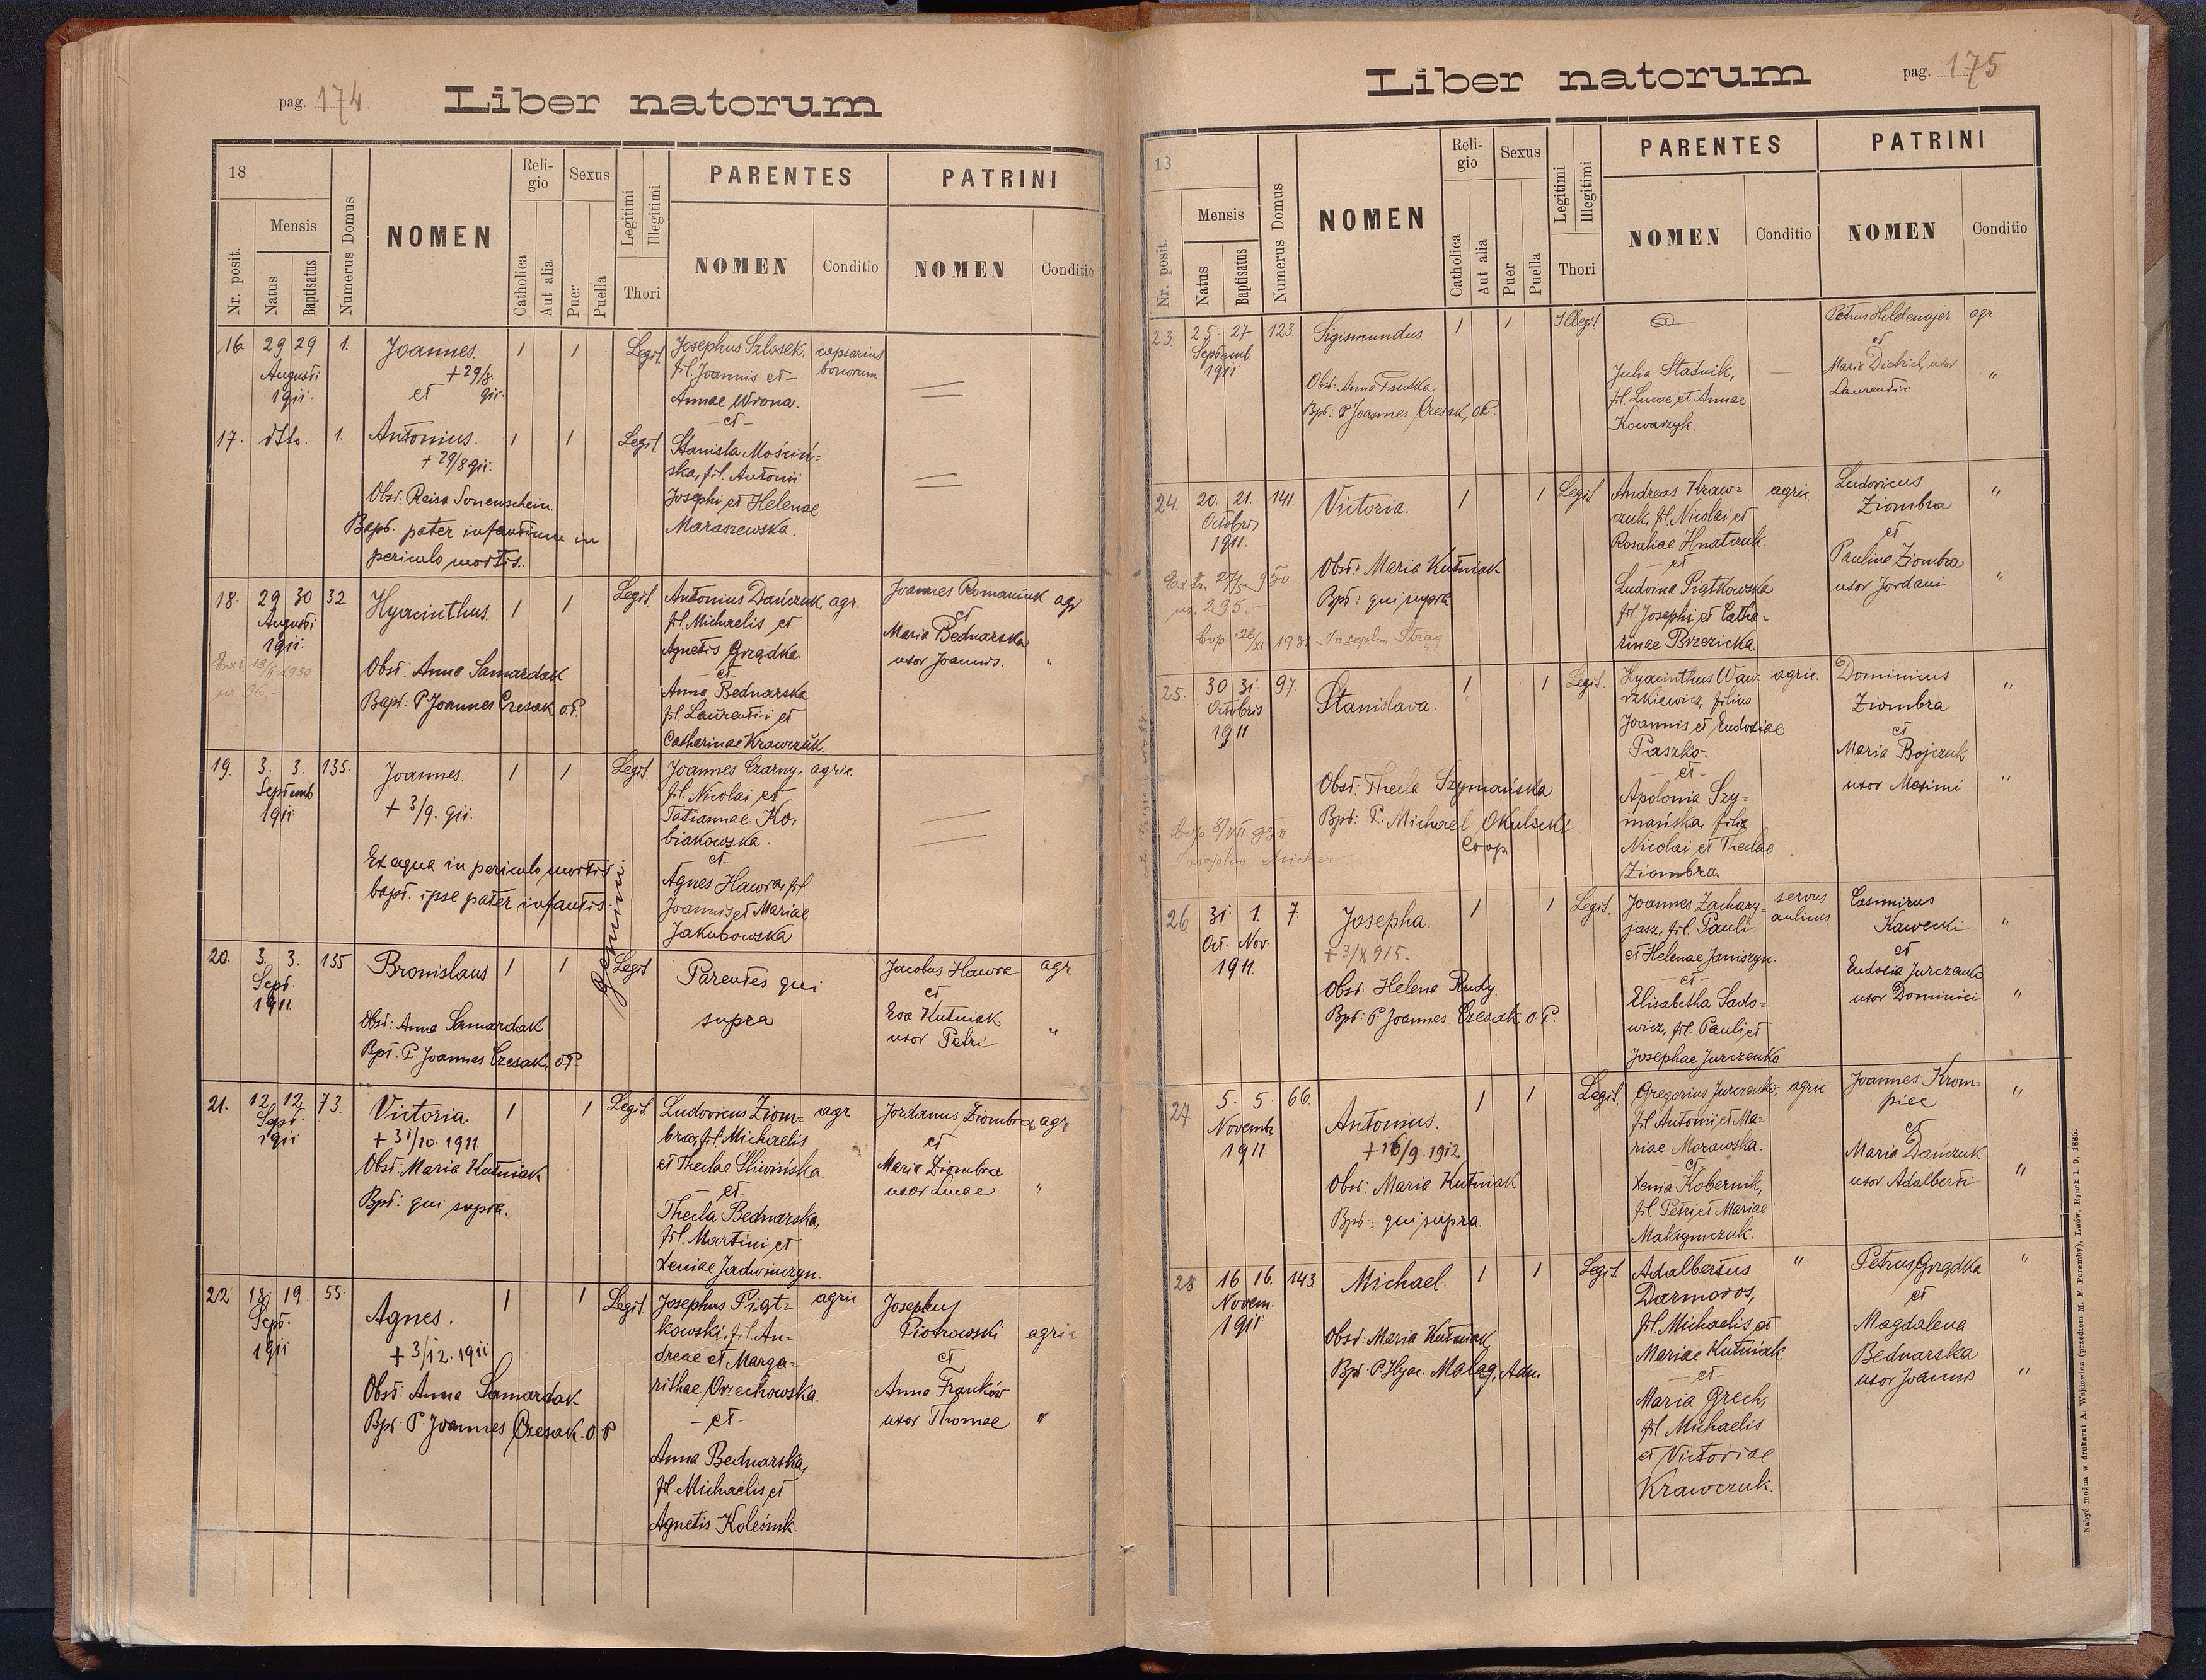 pag. 174.
Liber natorum
18
Nr. posit.
Mensis
Natus
Baptisatus
Numerus Domus
NOMEN
Religio
Catholica
Aut alia
Sexus
Puer
Puella
Legitimi
Illegitimi
Thori
PARENTES
NOMEN
Conditio
PATRINI
NOMEN
Conditio
16. 29 29 1. Joannes. 1 1 Legit. Josephus Szlosek, capsarius
Augusti + 29/8. fil. Joannis et bonorum.
1911. et 911. Annae Wrona.
-et-
17. dtto. 1. Antonius. 1 1 Legit. Stanisla Mościń=
+ 29/8 911. ska, fil. Antonii
Obst. Reisa Sonenschein. Josephi et Helenae
Bapt. pater infantium in Maraszewska.
periculo mortis.
18. 29 30 32. Hyacinthus. 1 1 Legit. Antonius Dańczuk, agr. Joannes Romaniuk agr
Augusti fil. Michaelis et et
1911. Agnetis Grządka. Maria Bednarska
-et- uxor Joannis. "
Ext. 18/II 1930
nr. 96.-
Obst: Anna Samardak Anna Bednarska
Bapt: P Joannes Czesak O.P. fil. Laurentii et
Catharinae Krawczuk.
19. 3. 3. 135. Joannes. 1 1 Legit. Joannes Czarny, agric.
Septemb + 3/9. 911. fil. Nicolai et
1911 Tatiannae Ko-
biakowska.
et
Ex aqua in periculo mortis
bapt. ipse pater infantis. Agnes Hawra, fil
Joannis et Mariae
Jakubowska
gemini
20. 3. 3. 135 Bronislaus 1 1 Legit Parentes qui Jacobus Hawra agr
Sept. supra et
1911. Eva Kutniak
Obst: Anna Samardak uxor Petri "
Bpt. P. Joannes Czesak, O.P.
21. 12 12 73. Victoria 1 1 Legit Ludovicus Ziom- agr. Jordanus Ziombra agr
Sept. + 31/10. 1911 bra, fil. Michaelis et
1911 et Theclae Sliwińska. Maria Ziombra
Obst: Maria Kutniak -et- uxor Lucae "
Bpt: qui supra. Thecla Bednarska,
fil. Martini et
Xeniae Jadwinczyn.
22 18. 19. 55. Agnes. 1 1 Legit. Josephus Piąt= agric. Josephus
Sept. kowski, fil. An- Piotrowski agric
1911 + 3/12. 1911 dreae et Marga- et
Obst: Anna Samardak rithae Orzechowska. Anna Franków
Bpt: P. Joannes Czesak. O.P -et- uxor Thomae "
Anna Bednarska,
fil. Michaelis et
Agnetis Koleśnik.
pag. 175
Liber natorum
18
Nr. posit.
Mensis
Natus
Baptisatus
Numerus Domus
NOMEN
Religio
Catholica
Aut alia
Sexus
Puer
Puella
Legitimi
Illegitimi
Thori
PARENTES
NOMEN
Conditio
PATRINI
NOMEN
Conditio
23. 25. 27 123. Sigismundus 1 1 Illegit Petrus Holdemajer agr
Septemb et
1911 Julia Stadnik, Maria uxor
Obst: Anna fil. Lucae et Annae Laurentii "
Bpt: P Joannes Czesak, O.P. Kowaszyk.
24. 20. 21. 141. Victoria. 1 1 Legit Andreas Kraw= agric Ludovicus "
Octobris czuk, fil. Nicolai et Ziombra
1911. Rosaliae Hnatczuk. et
Obst: Maria Kutniak -et- Paulina Ziombra
Bpt: qui supra Ludvina Piątkowska uxor Jordani "
nr. 295.- fil. Josephi et Catha-
rinae Brzezicka.
Cop 26/XI 1931
25. 30 31. 97. Stanislava. 1 1 Legit. Hyacinthus Waw- agric. Dominicus "
Octobris rzkiewicz, filius Ziombra
1911 Joannis et Eudosiae et
Paszko. Maria Bojczuk
et uxor Maximi "
Obst: Thecla Szymańska Apolonia Szy=
Bpt: P. Michael Okulicki mańska, filia
Coop. Nicolai et Theclae
Ziombra.
26 31 1. 7. Josepha. 1 1 Legit. Joannes Zachary- servus Casimirus
Oct. Nov. + 3/X 915. jasz, fil. Pauli aulicus Kawecki "
1911. et Helenae Janiszyn. et
Obst. Helena Rudy. -et- Eudosia Jurczenko
Bpt: P. Joannes Czesak, O.P. Elisabetha Sado= uxor Dominici "
wicz, fil. Pauli et
Josephae Jurczenko
27 5. 5. 66. Antonius. 1 1 Legit. Gregorius Jurczenko, agric Joannes Krom- "
Novemb. + 16/9. 1912 fil. Antonii et Ma- piec
1911. riae Morawska. et
Obst: Maria Kutniak -et- Maria Dańczuk
Bpt: qui supra. Xenia Kobernik, uxor Adalberti "
fil. Petri et Mariae
Maksymczuk.
28 16 16. 143 Michael. 1 1 Legit. Adalbertus " Petrus Grządka "
Novem. Darmoros, et
1911 fil. Michaelis et Magdalena
Obst: Maria Kutniak Mariae Kutniak Bednarska
Bpt: P. Hyac. Małag, Adm -et- uxor Joannis "
Maria Grech,
fil Michaelis
et Victoriae
Krawczuk.
Nabyć można w drukarni A. Wajdowicz (przedtem M. F. Poremby), Lwów, Rynek l. 9, 1885.